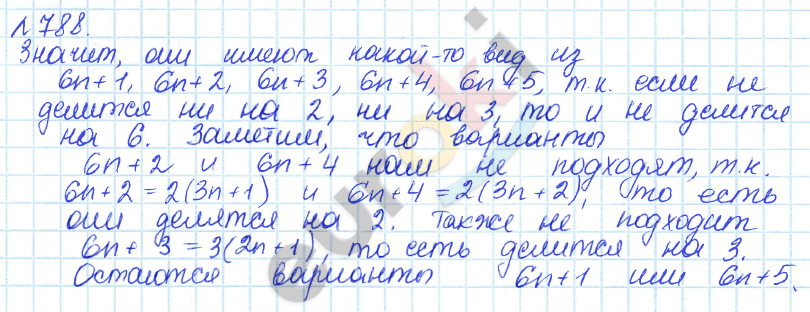 №788.
Значит, они имеют какой-то вид из
6n+1, 6n+2, 6n+3, 6n+4, 6n+5, т.к. если не
делится ни на 2, ни на 3, то и не делится
на 6. Заметим, что варианты
6n+2 и 6n+4 нам не подходят, т.к.
6n+2 = 2(3n+1) и 6n+4 = 2(3n+2), то есть
они делятся на 2. Также не подходит
6n+3 = 3(2n+1), то есть делится на 3.
Остаются варианты 6n+1 или 6n+5.
euroki